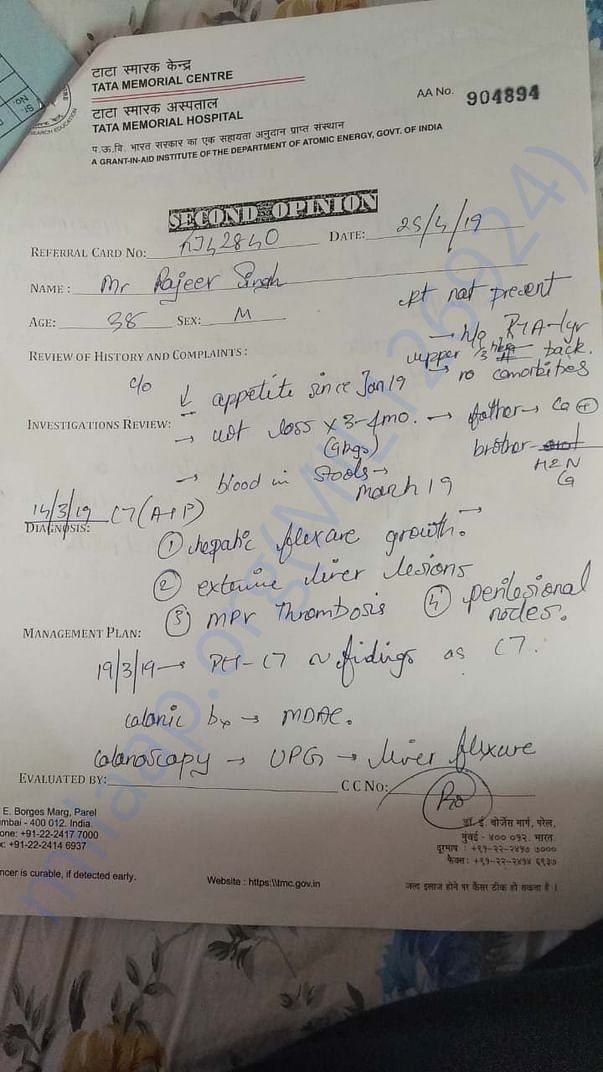 टाटा स्मारक केन्द्र
TATA MEMORIAL CENTRE
टाटा स्मारक अस्पताल
TATA MEMORIAL HOSPITAL
AA No. 904894
प.ऊ.वि. भारत सरकार का एक सहायता अनुदान प्राप्त संस्थान
A GRANT-IN-AID INSTITUTE OF THE DEPARTMENT OF ATOMIC ENERGY, GOVT. OF INDIA
SECOND OPINION
REFERRAL CARD NO: RJ42840 DATE: 25/4/19
NAME: Mr Rajeer Singh
AGE: 38 SEX: M
cpt not present
→ h/o RTA-1yr
upper 1/3 back.
→ no comorbities
REVIEW OF HISTORY AND COMPLAINTS:
c/o ↓ appetite since Jan 19
INVESTIGATIONS REVIEW:
→ wt loss x 3-4mo. → father → Ca ⊕
(9kgs) brother
H&N
Ca
→ blood in stools →
march 19
14/3/19 CT (A+P)
DIAGNOSIS:
① hepatic flexure growth. →
② extensive liver lesions
③ MPV Thrombosis ④ perilesional
nodes.
MANAGEMENT PLAN:
19/3/19 → PET-CT ~ fidings as CT.
colonic bx → MDAC.
colonoscopy → UPG → liver flexure
EVALUATED BY: CC NO:
E. Borges Marg, Parel
mbai - 400 012. India.
one: +91-22-2417 7000
x: +91-22-2414 6937
डॉ. ई. बोर्जेस मार्ग, परेल,
मुंबई - ४०० ०१२. भारत.
दूरभाष : +९१-२२-२४१७ ७०००
फैक्स : +९१-२२-२४१४ ६९३७
ncer is curable, if detected early.
Website : https:\\tmc.gov.in
जल्द इलाज होने पर कैंसर ठीक हो सकता है ।
milaap.org(MILI 26924)